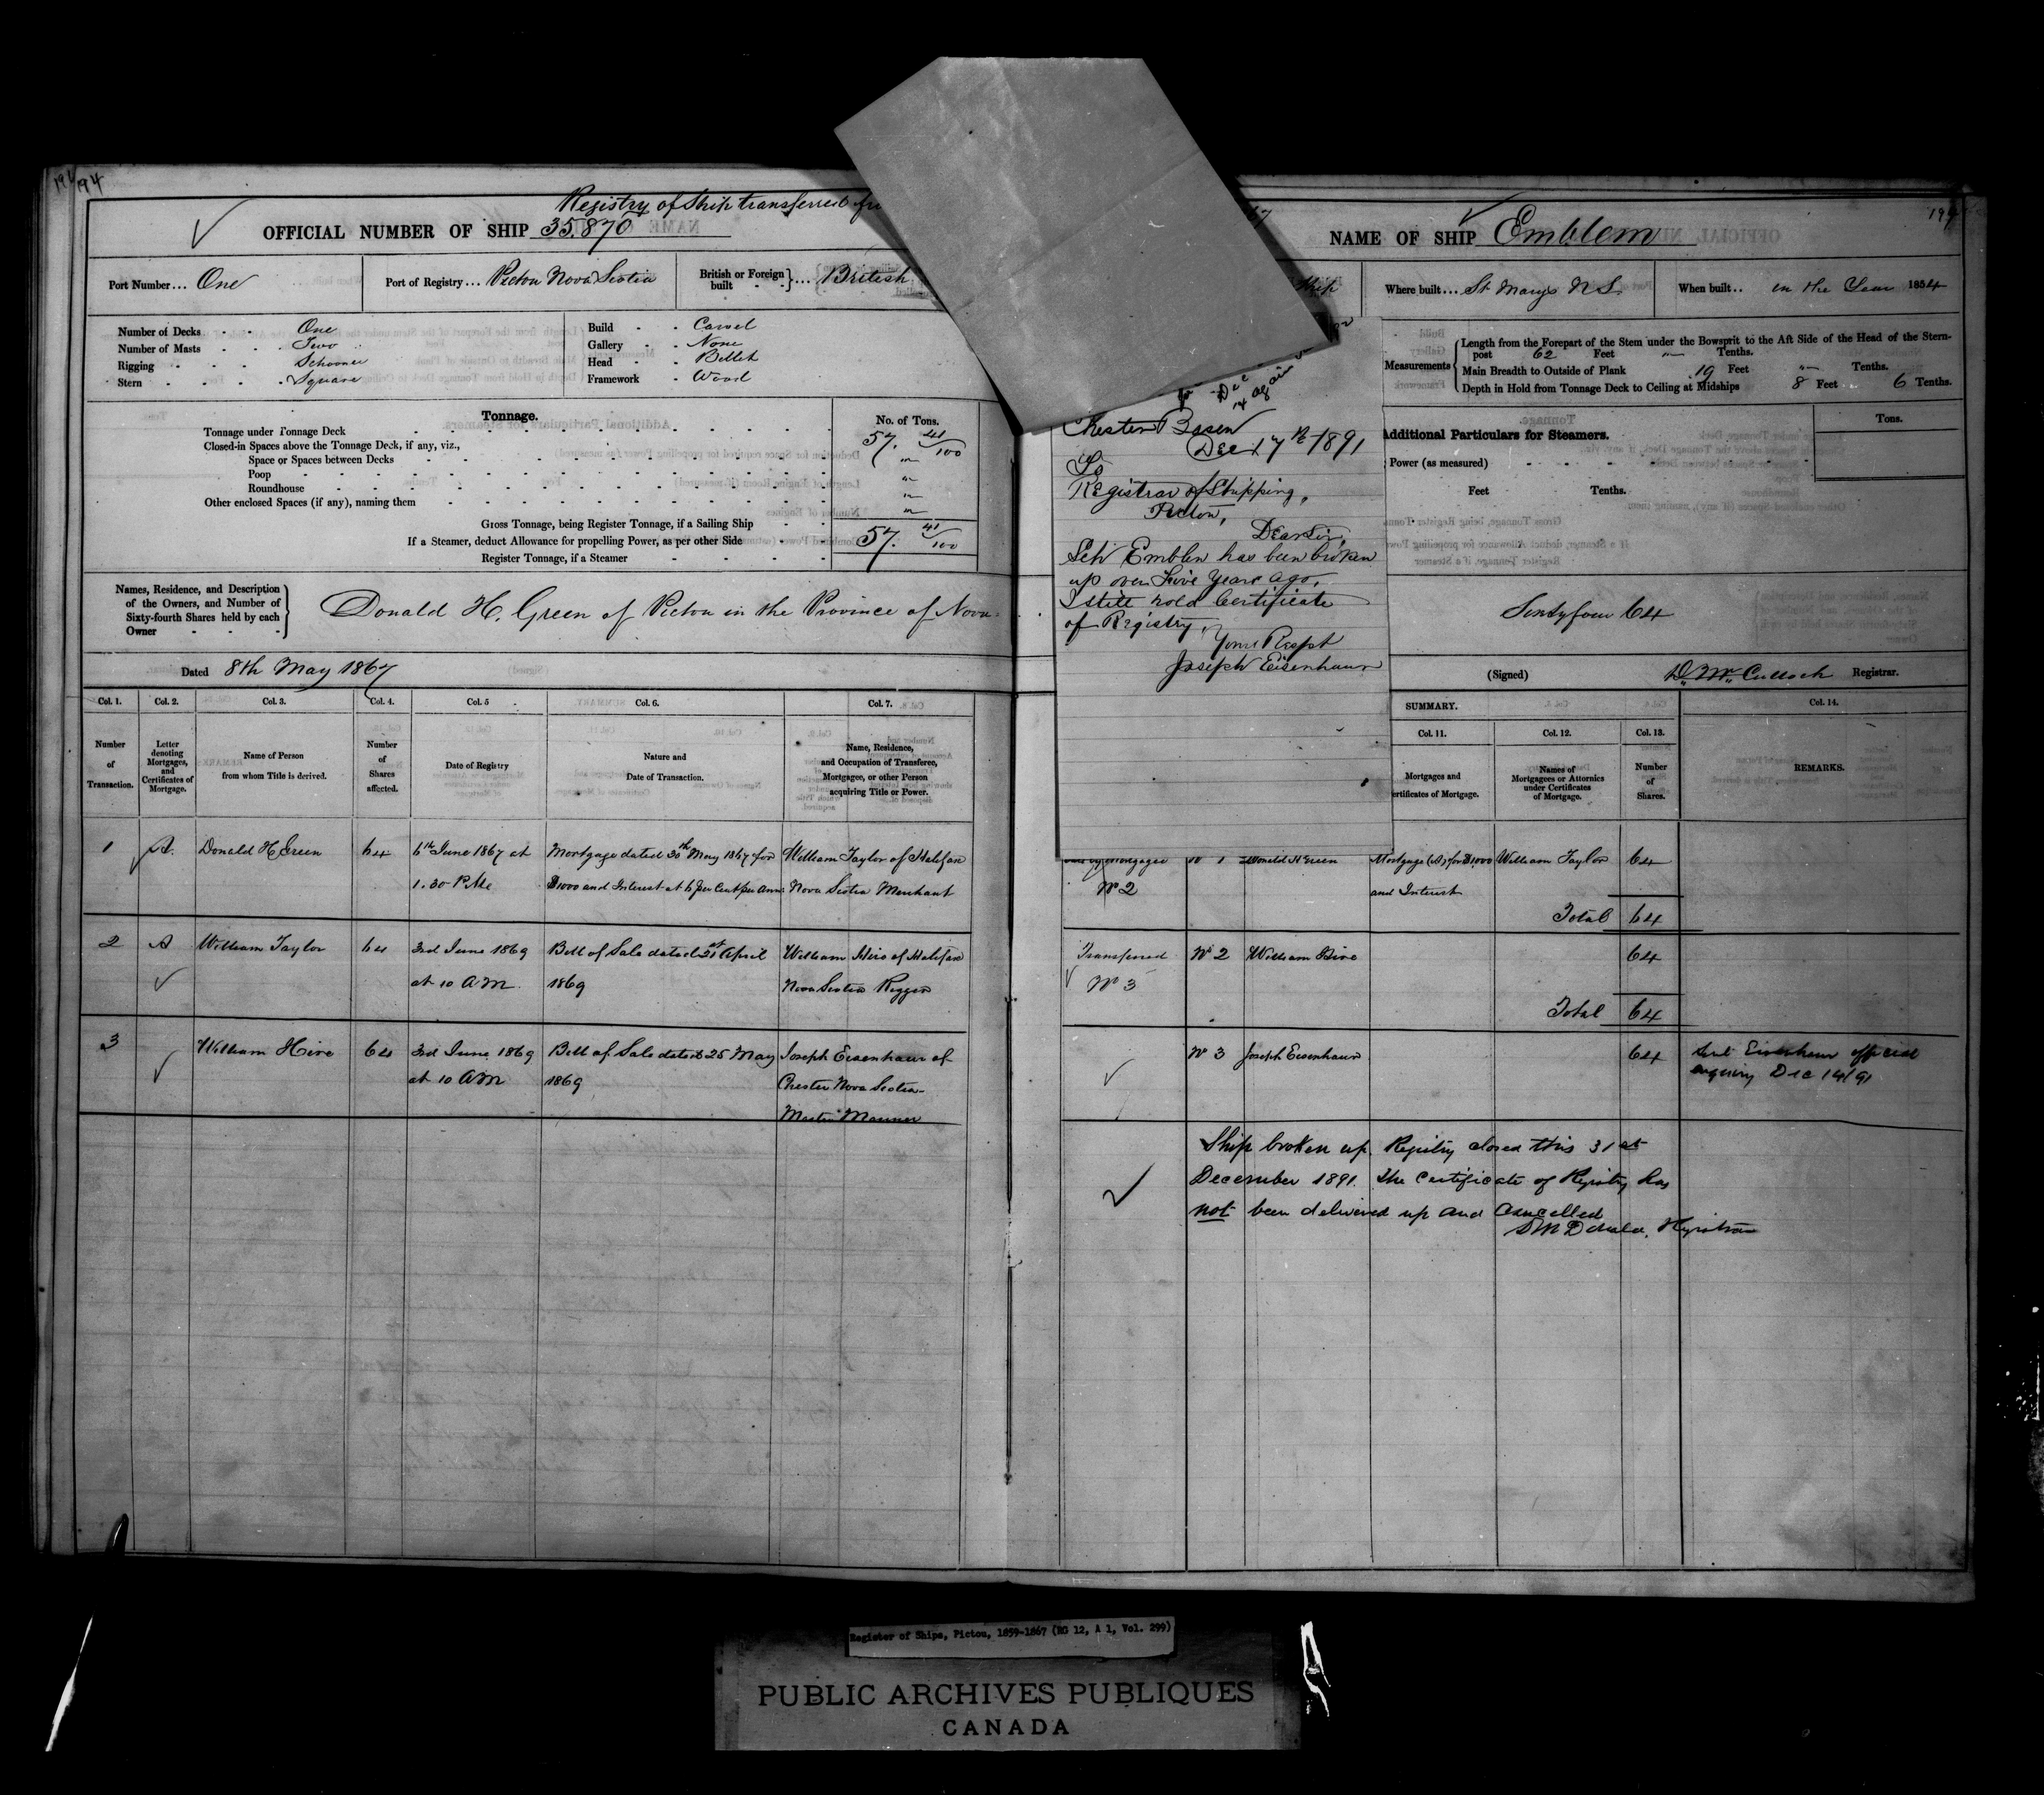 194 194
Registry of Ship transferred
OFFICIAL NUMBER OF SHIP 35.870
Port Number... One
Port of Registry... Pictou Nova Scotia
British or Foreign built } ... British
Number of Decks - - One
Number of Masts - - Two
Rigging - - - Schooner
Stern - - - Square
Build - - Carvel
Gallery - - None
Head - - Billet
Framework - Wood
Tonnage.
No. of Tons.
Tonnage under Tonnage Deck 57. 41/100
Closed-in Spaces above the Tonnage Deck, if any, viz.,
Space or Spaces between Decks "
Poop "
Roundhouse "
Other enclosed Spaces (if any), naming them "
Gross Tonnage, being Register Tonnage, if a Sailing Ship 57. 41/100
If a Steamer, deduct Allowance for propelling Power, as per other Side
Register Tonnage, if a Steamer
Names, Residence, and Description of the Owners, and Number of Sixty-fourth Shares held by each Owner
Donald H. Green of Pictou in the Province of Nova
Dated 8th May 1867
Col. 1. Col. 2. Col. 3. Col. 4. Col. 5 Col. 6. Col. 7.
Number of Transaction.
Letter denoting Mortgages, and Certificates of Mortgage.
Name of Person from whom Title is derived.
Number of Shares affected.
Date of Registry
Nature and Date of Transaction.
Name, Residence, and Occupation of Transferee, Mortgagee, or other Person acquiring Title or Power.
1 A. Donald H Green 64 6th June 1867 at Mortgage dated 30th May 1867 for William Taylor of Halifax
1.30 P.M. $1000 and Interest at 6 per Cent per Ann: Nova Scotia Merchant
2 A William Taylor 64 3rd June 1869 Bill of Sale dated 21st April William Hire of Halifax
at 10 AM. 1869 Nova Scotia Rigger
3 William Hire 64 3rd June 1869 Bill of Sale dated 25 May Joseph Eisenhaur of
at 10 AM 1869 Chester Nova Scotia
Master Mariner
Dec
14
again
Chester Basin
Dec 17th 1891
To
Registrar of Shipping,
Pictou,
Dear Sir,
Sch Emblem has been broken
up over Five Years ago,
I still hold Certificate
of Registry,
Yours Respt
Joseph Eisenhaur
194
NAME OF SHIP Emblem
Ship
Where built... St Marys N S.
When built.. in the Year 1854
Measurements
Length from the Forepart of the Stem under the Bowsprit to the Aft Side of the Head of the Stern-
post 62 Feet " Tenths.
Main Breadth to Outside of Plank 19 Feet " Tenths.
Depth in Hold from Tonnage Deck to Ceiling at Midships 8 Feet 6 Tenths.
Additional Particulars for Steamers.
Tons.
Power (as measured)
Feet Tenths.
Sixty four 64
(Signed) D. McCulloch Registrar.
SUMMARY.
Col. 11. Col. 12. Col. 13. Col. 14.
Mortgages and
ertificates of Mortgage.
Names of Mortgagees or Attornies under Certificates of Mortgage.
Number of Shares.
REMARKS.
Sale by Mortgagee No 1 Donald H Green Mortgage (A) for $1000 William Taylor 64
No 2 and Interest
Total 64
Transferred No 2 William Hire 64
No 3
Total 64
No 3 Joseph Eisenhaur 64 Sent Eisenhaur official
enquiry Dec 14/91
Ship broken up. Registry closed this 31st
December 1891. The Certificate of Registry has
not been delivered up and cancelled
D McDonald, Registrar
Register of Ships, Pictou, 1859-1867 (RG 12, A 1, Vol. 299)
PUBLIC ARCHIVES PUBLIQUES
CANADA